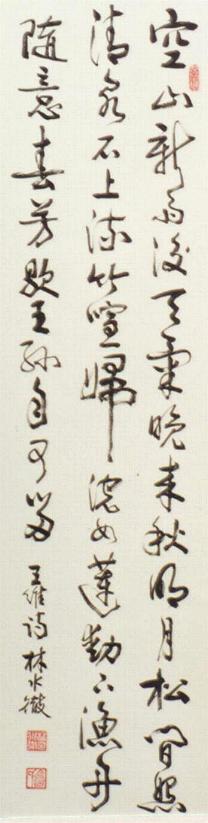 空山新雨後天氣晚來秋明月松間照
清泉石上流竹喧歸浣女蓮動下漁舟
隨意春芳歇王孫自可留
王維詩 林水徽